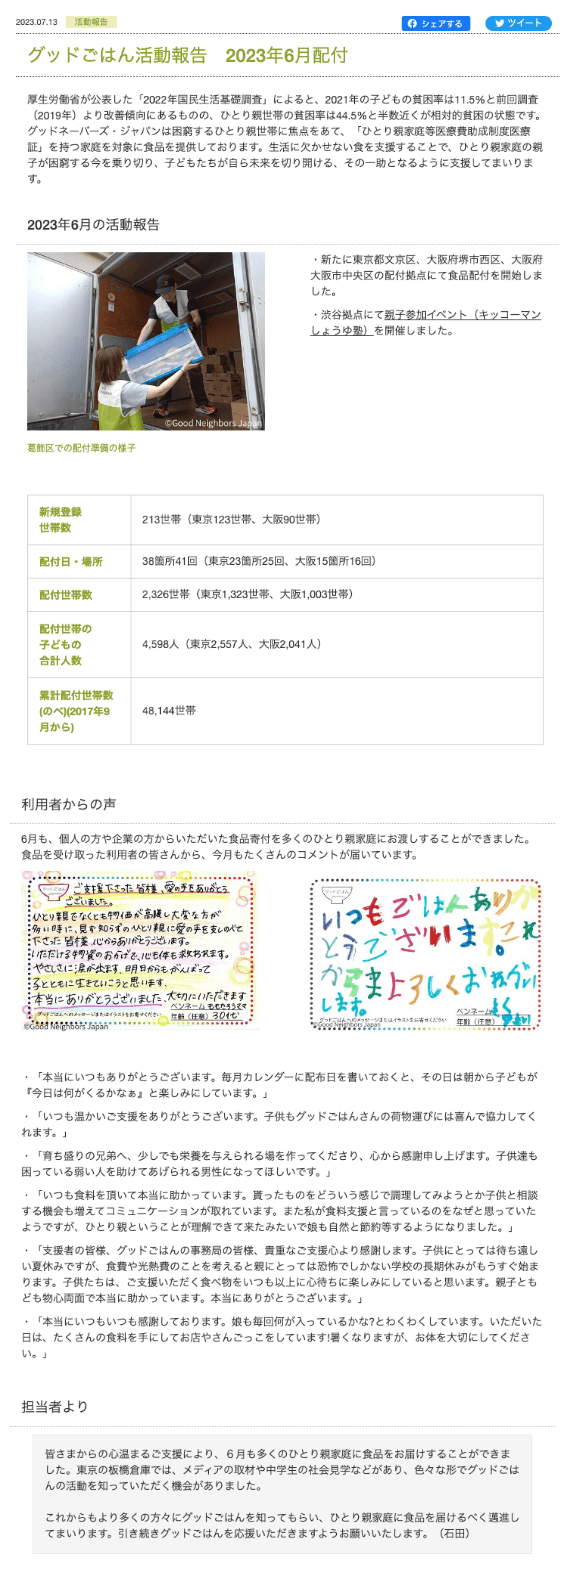 2023.07.13 活動報告 シェアする ツイート
グッドごはん活動報告　2023年6月配付
厚生労働省が公表した「2022年国民生活基礎調査」によると、2021年の子どもの貧困率は11.5％と前回調査
（2019年）より改善傾向にあるものの、ひとり親世帯の貧困率は44.5％と半数近くが相対的貧困の状態です。
グッドネーバーズ・ジャパンは困窮するひとり親世帯に焦点をあて、「ひとり親家庭等医療費助成制度医療
証」を持つ家庭を対象に食品を提供しております。生活に欠かせない食を支援することで、ひとり親家庭の親
子が困窮する今を乗り切り、子どもたちが自ら未来を切り開ける、その一助となるように支援してまいりま
す。
2023年6月の活動報告
・新たに東京都文京区、大阪府堺市西区、大阪府
大阪市中央区の配付拠点にて食品配付を開始しま
した。
・渋谷拠点にて親子参加イベント（キッコーマン
しょうゆ塾）を開催しました。
©Good Neighbors Japan
葛飾区での配付準備の様子
新規登録
世帯数
213世帯（東京123世帯、大阪90世帯）
配付日・場所
38箇所41回（東京23箇所25回、大阪15箇所16回）
配付世帯数
2,326世帯（東京1,323世帯、大阪1,003世帯）
配付世帯の
子どもの
合計人数
4,598人（東京2,557人、大阪2,041人）
累計配付世帯数
(のべ)(2017年9
月から)
48,144世帯
利用者からの声
6月も、個人の方や企業の方からいただいた食品寄付を多くのひとり親家庭にお渡しすることができました。
食品を受け取った利用者の皆さんから、今月もたくさんのコメントが届いています。
グッドごはん
ご支援下さった皆様、愛の手をありがとう
ございました。
ひとり親でなくとも物価が高騰し大変な方が
多い時に、見ず知らずのひとり親に愛の手を差しのべて
下さった皆様、心からありがとうございます。
いただける物資のおかげで、心も体も救われます。
やさしさに涙が出ます、明日からもがんばって
子とともに生きていこうと思います。
本当にありがとうございました、大切にいただきます
グッドごはんへのメッセージまたはイラストをお寄せください
ペンネーム
年齢（任意）30代
©Good Neighbors Japan
グッドごはん
いつもごはんありが
とうございます。これ
からもよろしくおねがい
します。
グッドごはんへのメッセージまたはイラストをお寄せください
ペンネーム
年齢（任意）
©Good Neighbors Japan
・「本当にいつもありがとうございます。毎月カレンダーに配布日を書いておくと、その日は朝から子どもが
『今日は何がくるかなぁ』と楽しみにしています。」
・「いつも温かいご支援をありがとうございます。子供もグッドごはんさんの荷物運びには喜んで協力してく
れます。」
・「育ち盛りの兄弟へ、少しでも栄養を与えられる場を作ってくださり、心から感謝申し上げます。子供達も
困っている弱い人を助けてあげられる男性になってほしいです。」
・「いつも食料を頂いて本当に助かっています。貰ったものをどういう感じで調理してみようとか子供と相談
する機会も増えてコミュニケーションが取れています。また私が食料支援と言っているのをなぜと思っていた
ようですが、ひとり親ということが理解できて来たみたいで娘も自然と節約等するようになりました。」
・「支援者の皆様、グッドごはんの事務局の皆様、貴重なご支援心より感謝します。子供にとっては待ち遠し
い夏休みですが、食費や光熱費のことを考えると親にとっては恐怖でしかない学校の長期休みがもうすぐ始ま
ります。子供たちは、ご支援いただく食べ物をいつも以上に心待ちに楽しみにしていると思います。親子とも
ども物心両面で本当に助かっています。本当にありがとうございます。」
・「本当にいつもいつも感謝しております。娘も毎回何が入っているかな?とわくわくしています。いただいた
日は、たくさんの食料を手にしてお店やさんごっこをしています!暑くなりますが、お体を大切にしてくださ
い。」
担当者より
皆さまからの心温まるご支援により、６月も多くのひとり親家庭に食品をお届けすることができま
した。東京の板橋倉庫では、メディアの取材や中学生の社会見学などがあり、色々な形でグッドごは
んの活動を知っていただく機会がありました。
これからもより多くの方々にグッドごはんを知ってもらい、ひとり親家庭に食品を届けるべく邁進し
てまいります。引き続きグッドごはんを応援いただきますようお願いいたします。（石田）